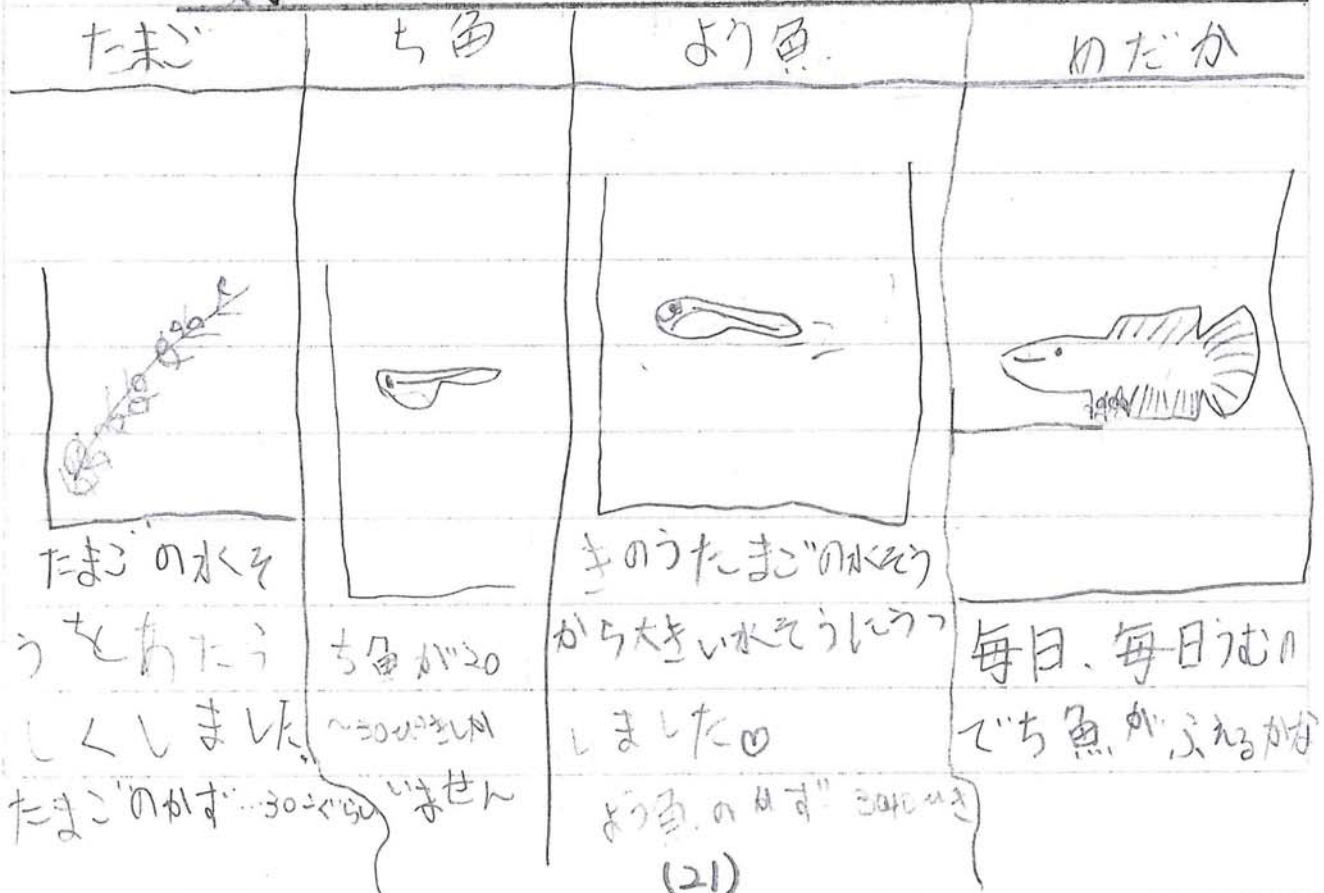 たまご
ち魚
よう魚
めだか
たまごの水そ
うをあたら
しくしました
たまごのかず…30こぐらい
ち魚が20
~30ぴきしか
いません
きのうたまごの水そう
から大きい水そうにうつ
しました♡
よう魚のかず
毎日、毎日うむの
でち魚がふえるかな
(21)